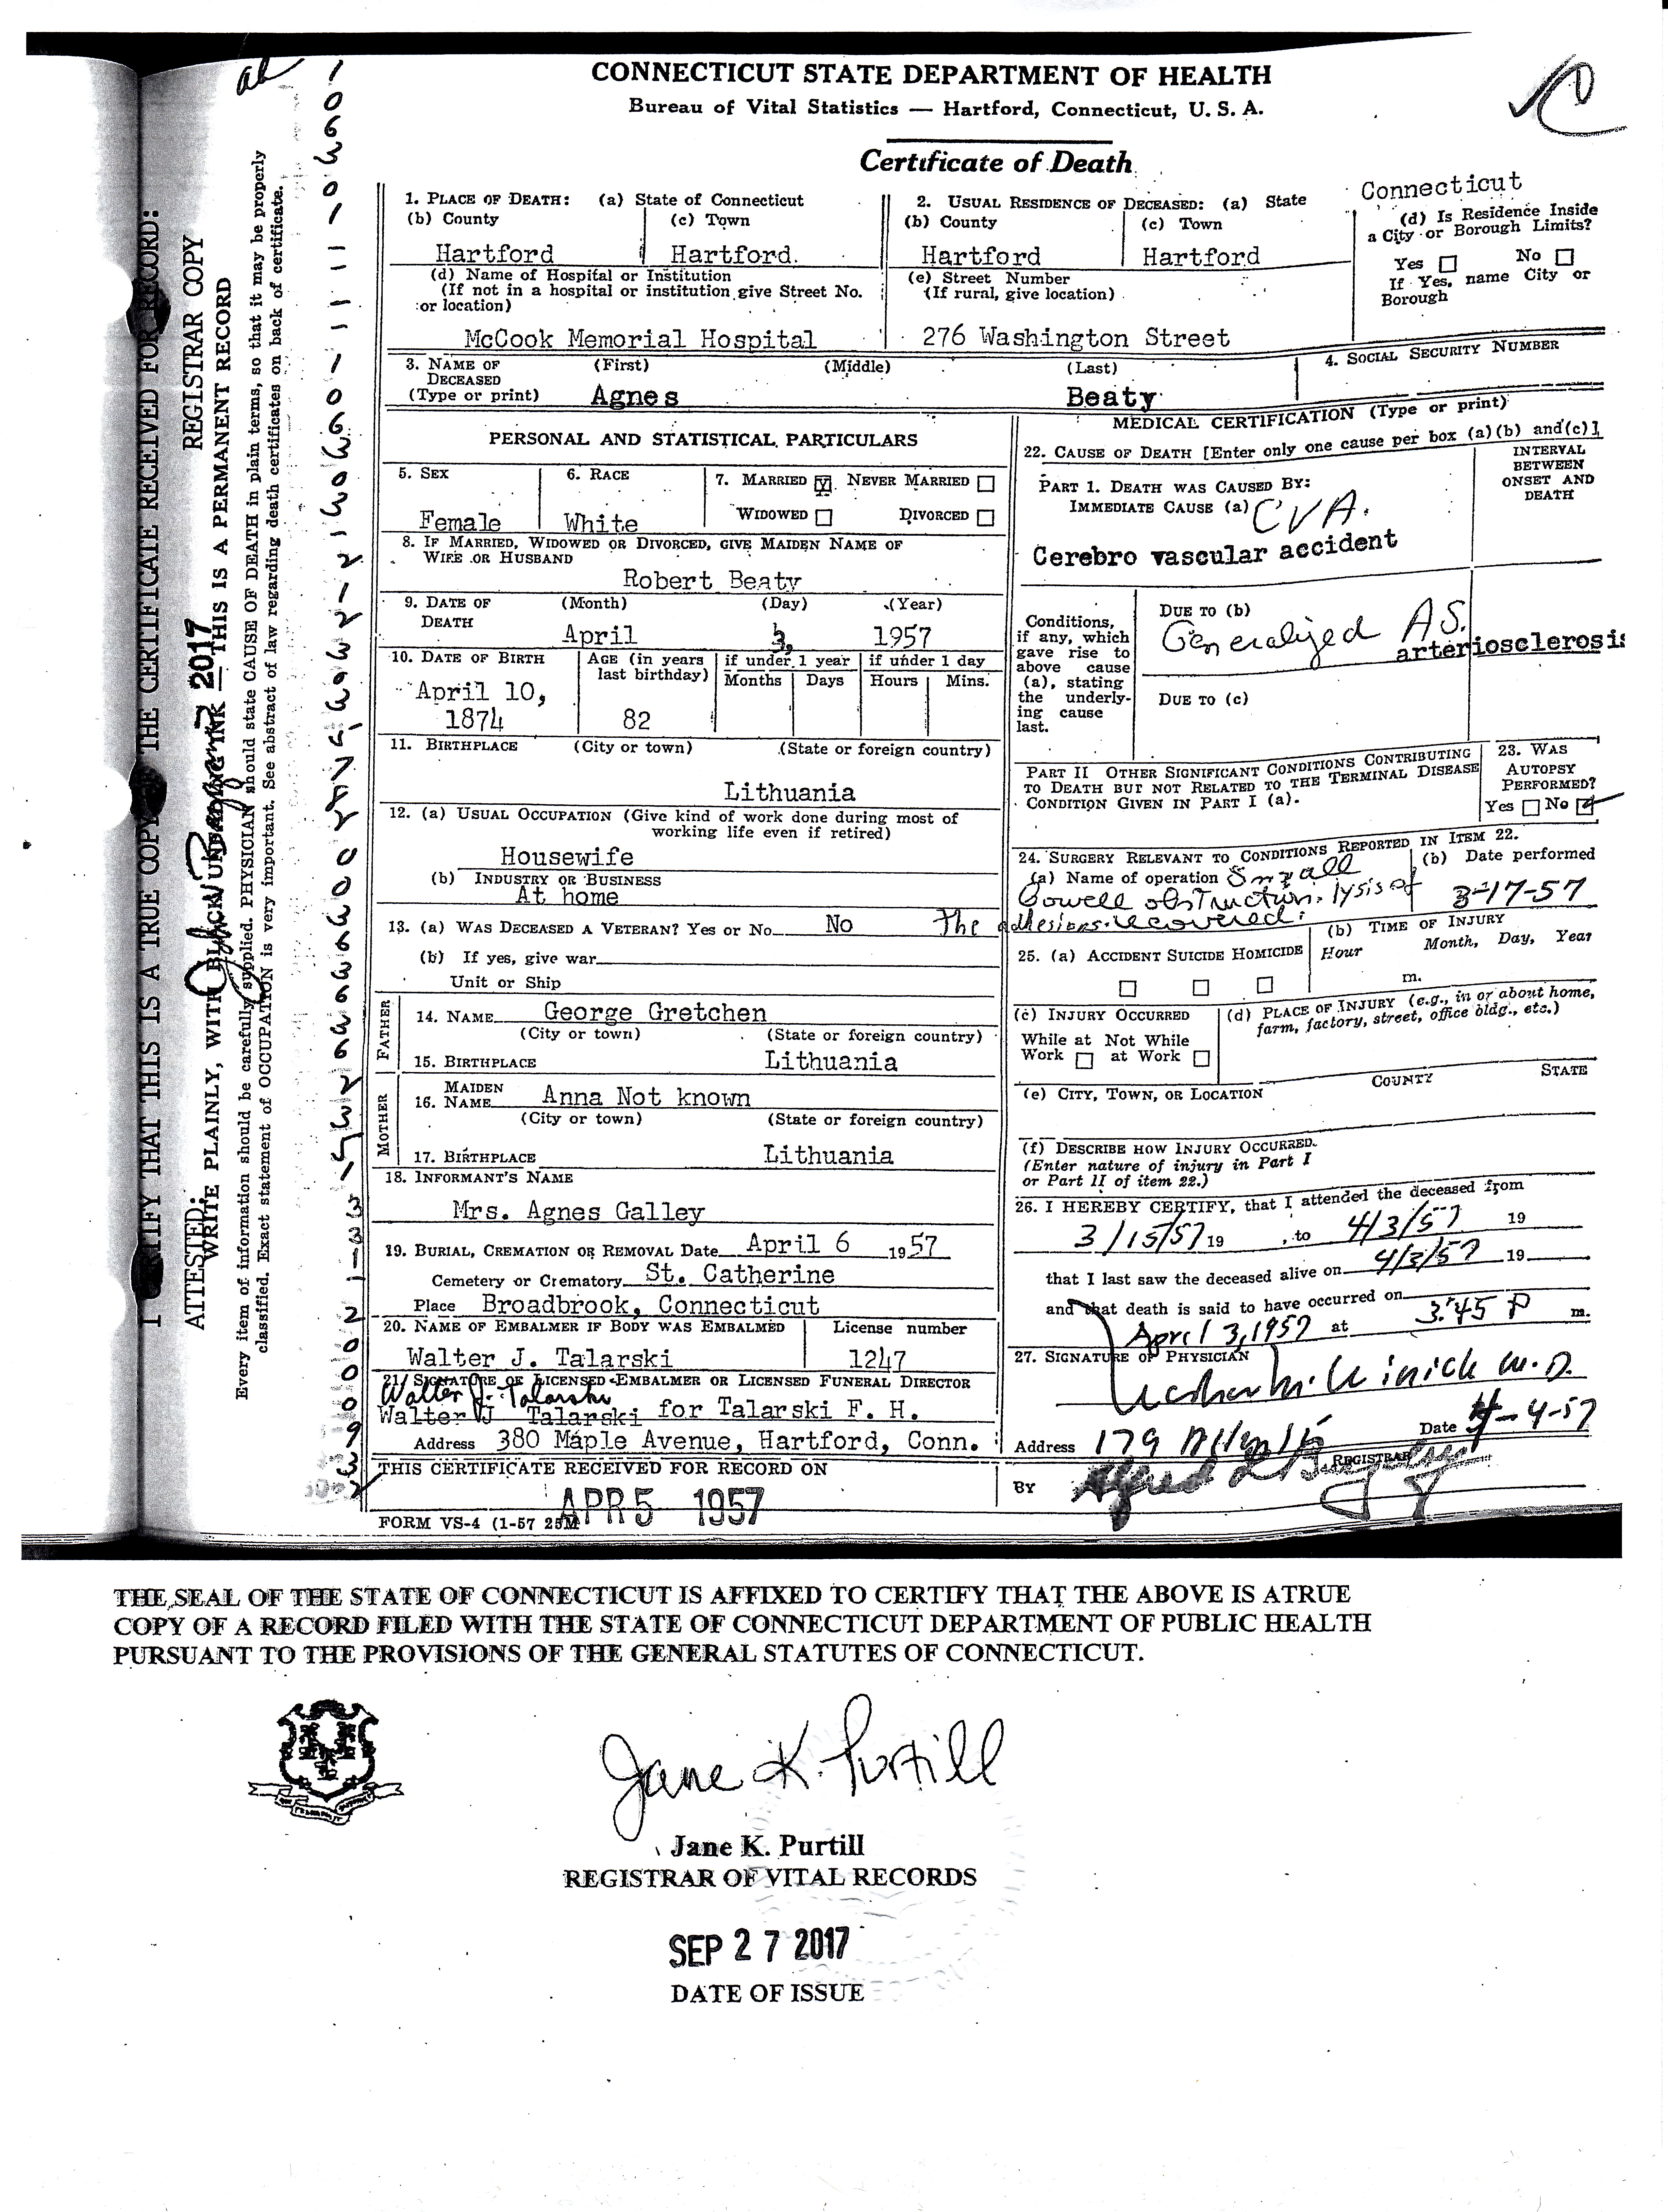 CONNECTICUT STATE DEPARTMENT OF HEALTH
Bureau of Vital Statistics — Hartford, Connecticut, U. S. A.
Certificate of Death
I CERTIFY THAT THIS IS A TRUE COPY OF THE CERTIFICATE RECEIVED FOR RECORD:
ATTESTED:
REGISTRAR COPY
2017
WRITE PLAINLY, WITH BLACK UNFADING INK — THIS IS A PERMANENT RECORD
Every item of information should be carefully supplied. PHYSICIAN should state CAUSE OF DEATH in plain terms, so that it may be properly
classified. Exact statement of OCCUPATION is very important. See abstract of law regarding death certificates on back of certificate.
1. PLACE OF DEATH: (a) State of Connecticut
(b) County (c) Town
Hartford Hartford.
(d) Name of Hospital or Institution
(If not in a hospital or institution give Street No.
or location)
McCook Memorial Hospital
2. USUAL RESIDENCE OF DECEASED: (a) State
Connecticut
(b) County (c) Town
Hartford Hartford
(d) Is Residence Inside
a City or Borough Limits?
Yes No
If Yes, name City or
Borough
(e) Street Number
(If rural, give location)
276 Washington Street
3. NAME OF DECEASED
(First) (Middle) (Last)
(Type or print) Agnes Beaty
4. SOCIAL SECURITY NUMBER
PERSONAL AND STATISTICAL PARTICULARS
5. SEX
Female
6. RACE
White
7. MARRIED NEVER MARRIED
WIDOWED DIVORCED
8. IF MARRIED, WIDOWED OR DIVORCED, GIVE MAIDEN NAME OF
WIFE OR HUSBAND
Robert Beaty
9. DATE OF DEATH
(Month) (Day) (Year)
April 3, 1957
10. DATE OF BIRTH
April 10,
1874
AGE (in years
last birthday)
82
if under 1 year
Months Days
if under 1 day
Hours Mins.
11. BIRTHPLACE (City or town) (State or foreign country)
Lithuania
12. (a) USUAL OCCUPATION (Give kind of work done during most of
working life even if retired)
Housewife
(b) INDUSTRY OR BUSINESS
At home
13. (a) WAS DECEASED A VETERAN? Yes or No No
(b) If yes, give war
Unit or Ship
FATHER
14. NAME George Gretchen
(City or town) (State or foreign country)
15. BIRTHPLACE Lithuania
MOTHER
16. MAIDEN NAME Anna Not known
(City or town) (State or foreign country)
17. BIRTHPLACE Lithuania
18. INFORMANT'S NAME
Mrs. Agnes Galley
19. BURIAL, CREMATION OR REMOVAL Date April 6 1957
Cemetery or Crematory St. Catherine
Place Broadbrook, Connecticut
20. NAME OF EMBALMER IF BODY WAS EMBALMED License number
Walter J. Talarski 1247
21. SIGNATURE OF LICENSED EMBALMER OR LICENSED FUNERAL DIRECTOR
Walter J. Talarski
Walter J Talarski for Talarski F. H.
Address 380 Maple Avenue, Hartford, Conn.
THIS CERTIFICATE RECEIVED FOR RECORD ON
APR 5 1957
FORM VS-4 (1-57 25M
MEDICAL CERTIFICATION (Type or print)
22. CAUSE OF DEATH [Enter only one cause per box (a)(b) and(c)]
INTERVAL
BETWEEN
ONSET AND
DEATH
PART 1. DEATH WAS CAUSED BY:
IMMEDIATE CAUSE (a) CVA.
Cerebro vascular accident
Conditions,
if any, which
gave rise to
above cause
(a), stating
the underly-
ing cause
last.
DUE TO (b)
Generalized AS.
arteriosclerosis
DUE TO (c)
PART II OTHER SIGNIFICANT CONDITIONS CONTRIBUTING
TO DEATH BUT NOT RELATED TO THE TERMINAL DISEASE
CONDITION GIVEN IN PART I (a).
23. WAS
AUTOPSY
PERFORMED?
Yes No
24. SURGERY RELEVANT TO CONDITIONS REPORTED IN ITEM 22.
(a) Name of operation Small
bowell obstruction. lysis of
The adhesions. recovered.
(b) Date performed
3-17-57
25. (a) ACCIDENT SUICIDE HOMICIDE
(b) TIME OF INJURY
Hour Month, Day, Year
m.
(c) INJURY OCCURRED
While at Not While
Work at Work
(d) PLACE OF INJURY (e.g., in or about home,
farm, factory, street, office bldg., etc.)
(e) CITY, TOWN, OR LOCATION COUNTY STATE
(f) DESCRIBE HOW INJURY OCCURRED.
(Enter nature of injury in Part I
or Part II of item 22.)
26. I HEREBY CERTIFY, that I attended the deceased from
3/15/57 19 , to 4/3/57 19
that I last saw the deceased alive on 4/3/57 19
and that death is said to have occurred on
April 3, 1957 at 3:45 P m.
27. SIGNATURE OF PHYSICIAN
Winick M.D.
Address 179 Date 4-4-57
BY REGISTRAR
THE SEAL OF THE STATE OF CONNECTICUT IS AFFIXED TO CERTIFY THAT THE ABOVE IS A TRUE
COPY OF A RECORD FILED WITH THE STATE OF CONNECTICUT DEPARTMENT OF PUBLIC HEALTH
PURSUANT TO THE PROVISIONS OF THE GENERAL STATUTES OF CONNECTICUT.
Jane K. Purtill
Jane K. Purtill
REGISTRAR OF VITAL RECORDS
SEP 27 2017
DATE OF ISSUE